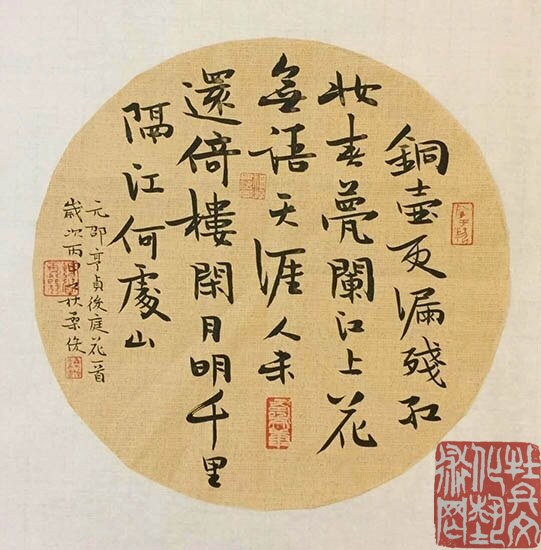 銅壺更漏殘紅
妝春夢闌江上花
無語天涯人未
還倚樓閑月明千里
隔江何處山
元邵亨貞後庭花一首
歲次丙申之秋